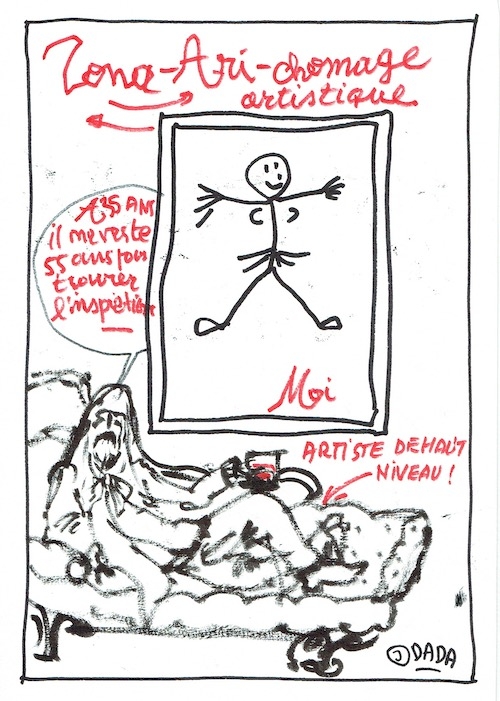 Zona-Ari-chomage
artistique
A 35 ANS
il me reste
55 ans pour
trouver
l'inspiration
Moi
ARTISTE DE HAUT
NIVEAU !
J DADA